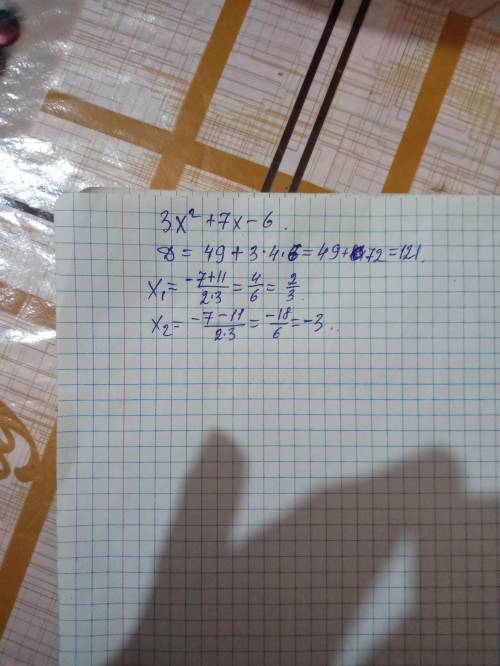 3x² + 7x - 6.
D = 49 + 3·4·6 = 49 + 72 = 121.
x₁ = (-7+11)/(2·3) = 4/6 = 2/3
x₂ = (-7-11)/(2·3) = -18/6 = -3.